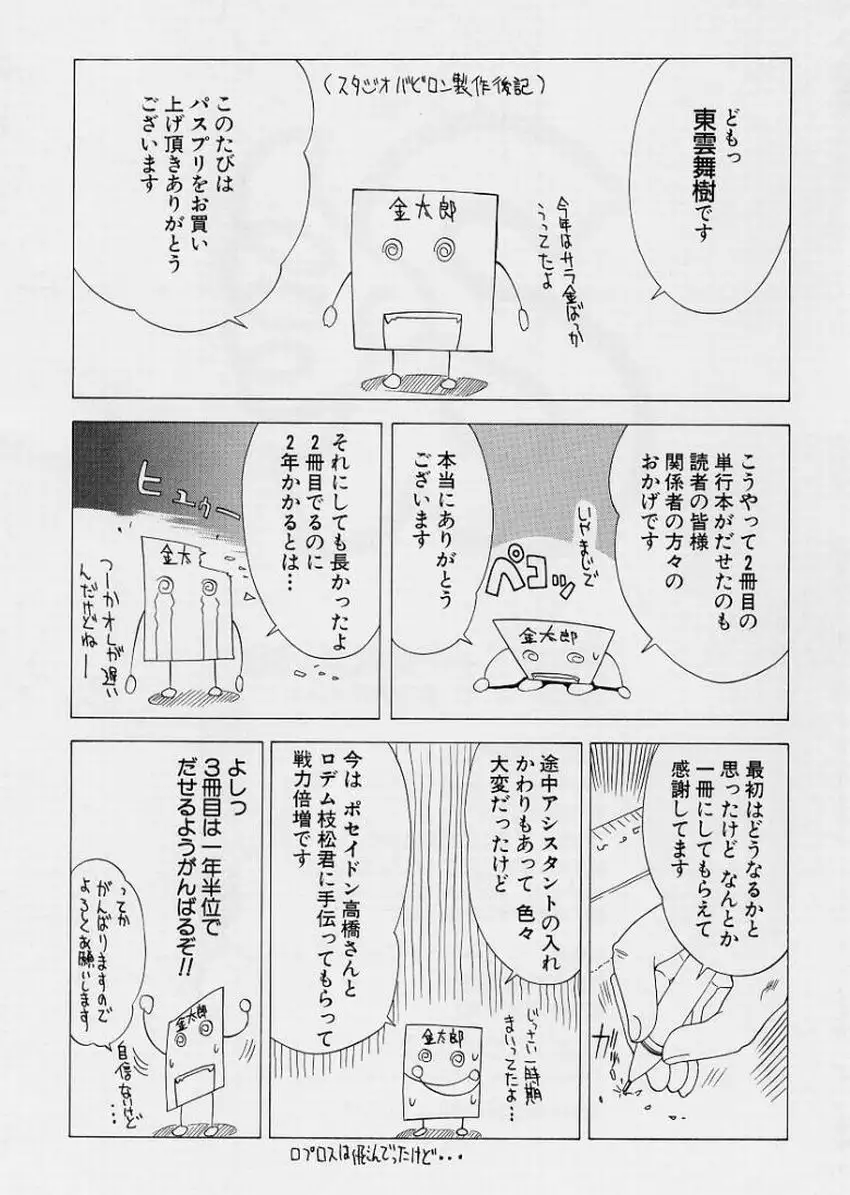 （スタジオバビロン製作後記）
どもっ
東雲舞樹です
今年はサラ金ばっか
うってたよ
金太郎
このたびは
パスプリをお買い
上げ頂きありがとう
ございます
こうやって2冊目の
単行本がだせたのも
読者の皆様
関係者の方々の
おかげです
いやまじで
ペコッ
金太郎
本当にありがとう
ございます
それにしても長かったよ
2冊目でるのに
2年かかるとは…
ヒュゥー
金太
つーかオレが遅い
んだけどねー
最初はどうなるかと
思ったけど なんとか
一冊にしてもらえて
感謝してます
ガッ
途中アシスタントの入れ
かわりもあって 色々
大変だったけど
じっさい一時期
まいってたよ…
金太郎
今は ポセイドン高橋さんと
ロデム枝松君に手伝ってもらって
戦力倍増です
よしっ
3冊目は一年半位で
だせるようがんばるぞ!!
金太郎
ってか
がんばりますので
よろしくお願いします
自信ないけど
…
ロプロスは飛んでったけど・・・